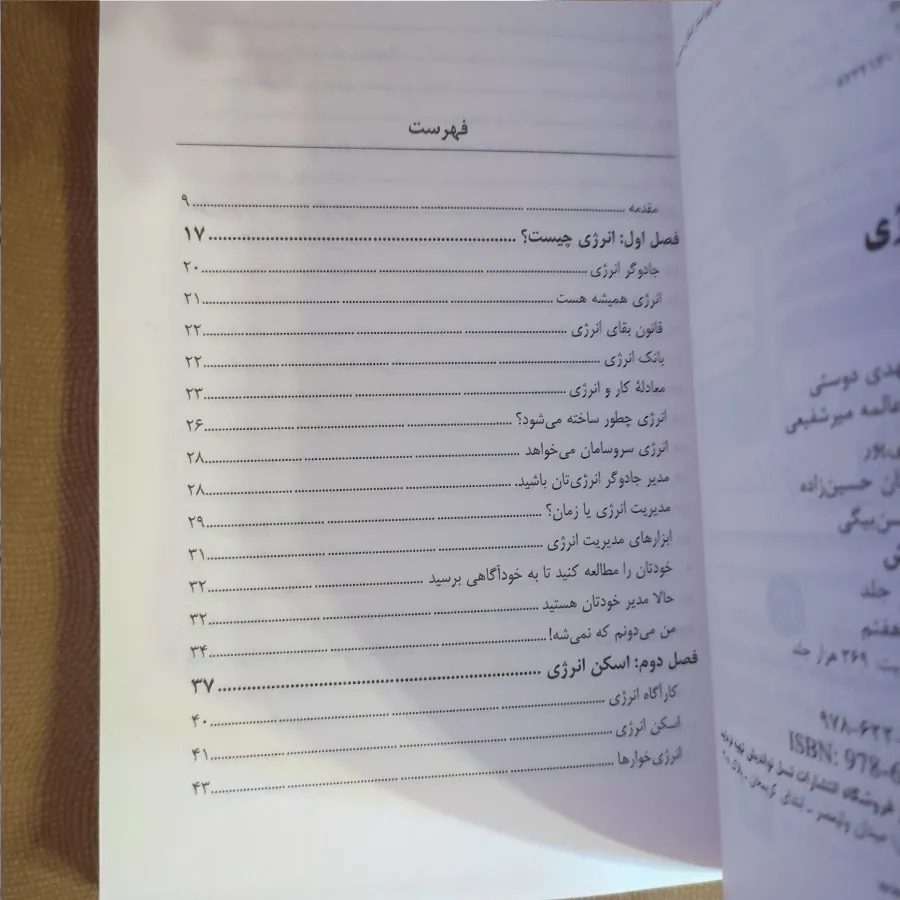 فهرست
مقدمه ........ ۹
فصل اول: انرژی چیست؟ ........ ۱۷
جادوگر انرژی ........ ۲۰
انرژی همیشه هست ........ ۲۱
قانون بقای انرژی ........ ۲۲
بانک انرژی ........ ۲۲
معادلهٔ کار و انرژی ........ ۲۳
انرژی چطور ساخته می‌شود؟ ........ ۲۶
انرژی سروسامان می‌خواهد ........ ۲۸
مدیر جادوگر انرژی‌تان باشید. ........ ۲۸
مدیریت انرژی یا زمان؟ ........ ۲۹
ابزارهای مدیریت انرژی ........ ۳۱
خودتان را مطالعه کنید تا به خودآگاهی برسید ........ ۳۲
حالا مدیر خودتان هستید ........ ۳۲
من می‌دونم که نمی‌شه! ........ ۳۴
فصل دوم: اسکن انرژی ........ ۳۷
کارآگاه انرژی ........ ۴۰
اسکن انرژی ........ ۴۱
انرژی‌خوارها ........ ۴۳
دوستی
میرشفیعی
پور
حسین‌زاده
بیگی
جلد
هفتم
۲۶۹ هزار جلد
۹۷۸-۶۲۲
ISBN: 978-6
فروشگاه انتشارات نسل نواندیش
میدان ولیعصر - ابتدای کریمخان